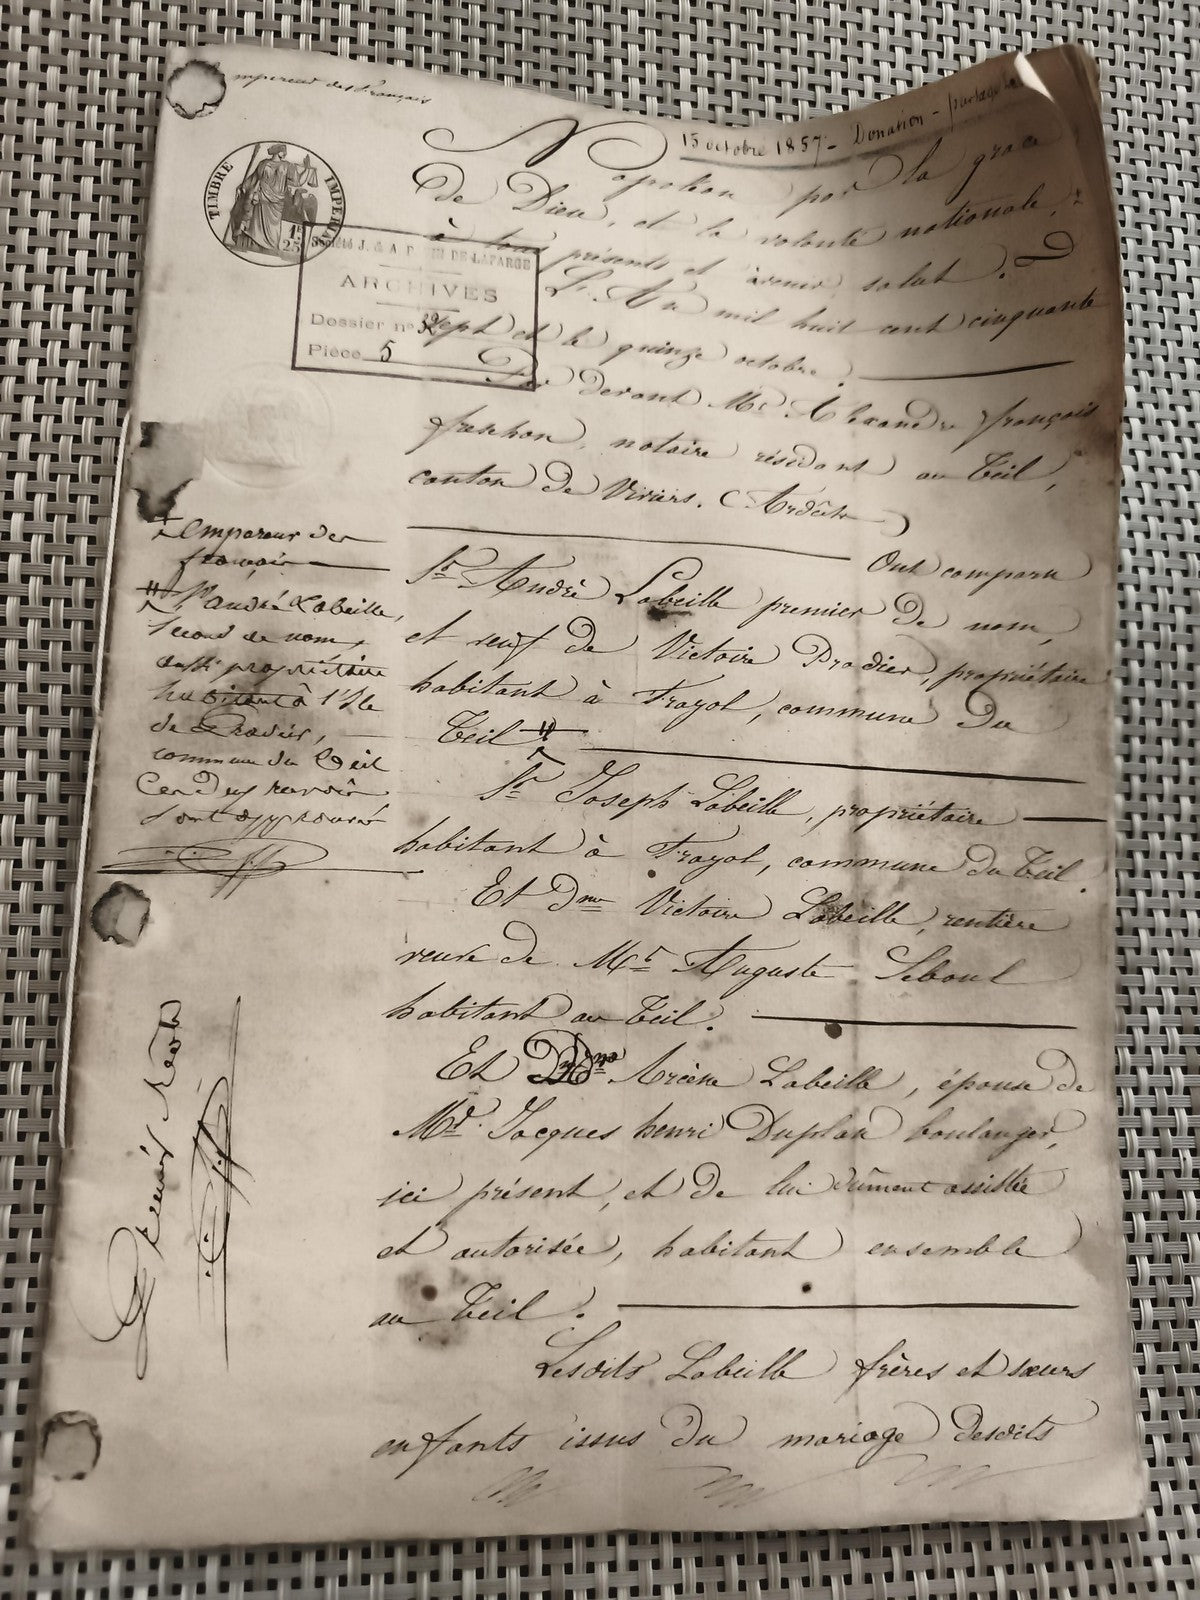 empereur des Français
15 octobre 1857 - Donation - partage
Napoléon par la grace
De Dieu, et la volonté nationale, +
à tous présents et à venir, salut.
L'An mil huit cent cinquante
sept et le quinze octobre.
Par devant Me Alexandre françois
notaire résidant au Teil,
canton de Viviers. (Ardèche)
Ont comparu
Sr André Labeille premier de nom,
et veuf de Victoire Pradier, propriétaire
habitant à Frayol, commune du
Teil #
Sr Joseph Labeille, propriétaire
habitant à Frayol, commune du Teil.
Et Dme Victoire Labeille, rentière
veuve de Mr Auguste Seboul
habitant au Teil.
Et Dme Arcène Labeille, épouse de
Mr Jacques henri Duplan boulanger,
ici présent, et de lui dûment assistée
et autorisée, habitant ensemble
au Teil.
Lesdits Labeille frères et sœurs
enfants issus du mariage desdits
TIMBRE IMPERIAL
1F
25
SOCIÉTÉ J. & A. P DE LAFARGE
ARCHIVES
Dossier n°
Pièce 5
+ empereur des
français
# Sr andré Labeille,
second de nom,
aussi propriétaire
habitant à l'île
de Pradier,
commune du Teil
Ces deux renvois
sont approuvés
premier